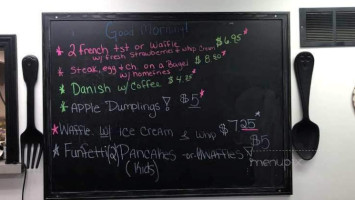 Good Morning!
* 2 french tst or Waffle $6.95*
w/ fresh strawberries & whip cream
* Steak, egg & ch. on a Bagel $8.50*
w/ homefries
* Danish w/ Coffee $4.25*
* Apple Dumplings! $5*
* Waffle w/ ICE CREAM & Whip $7.25*
* Funfetti (2) Pancakes -or- Waffles! $5
(Kids)
menupix